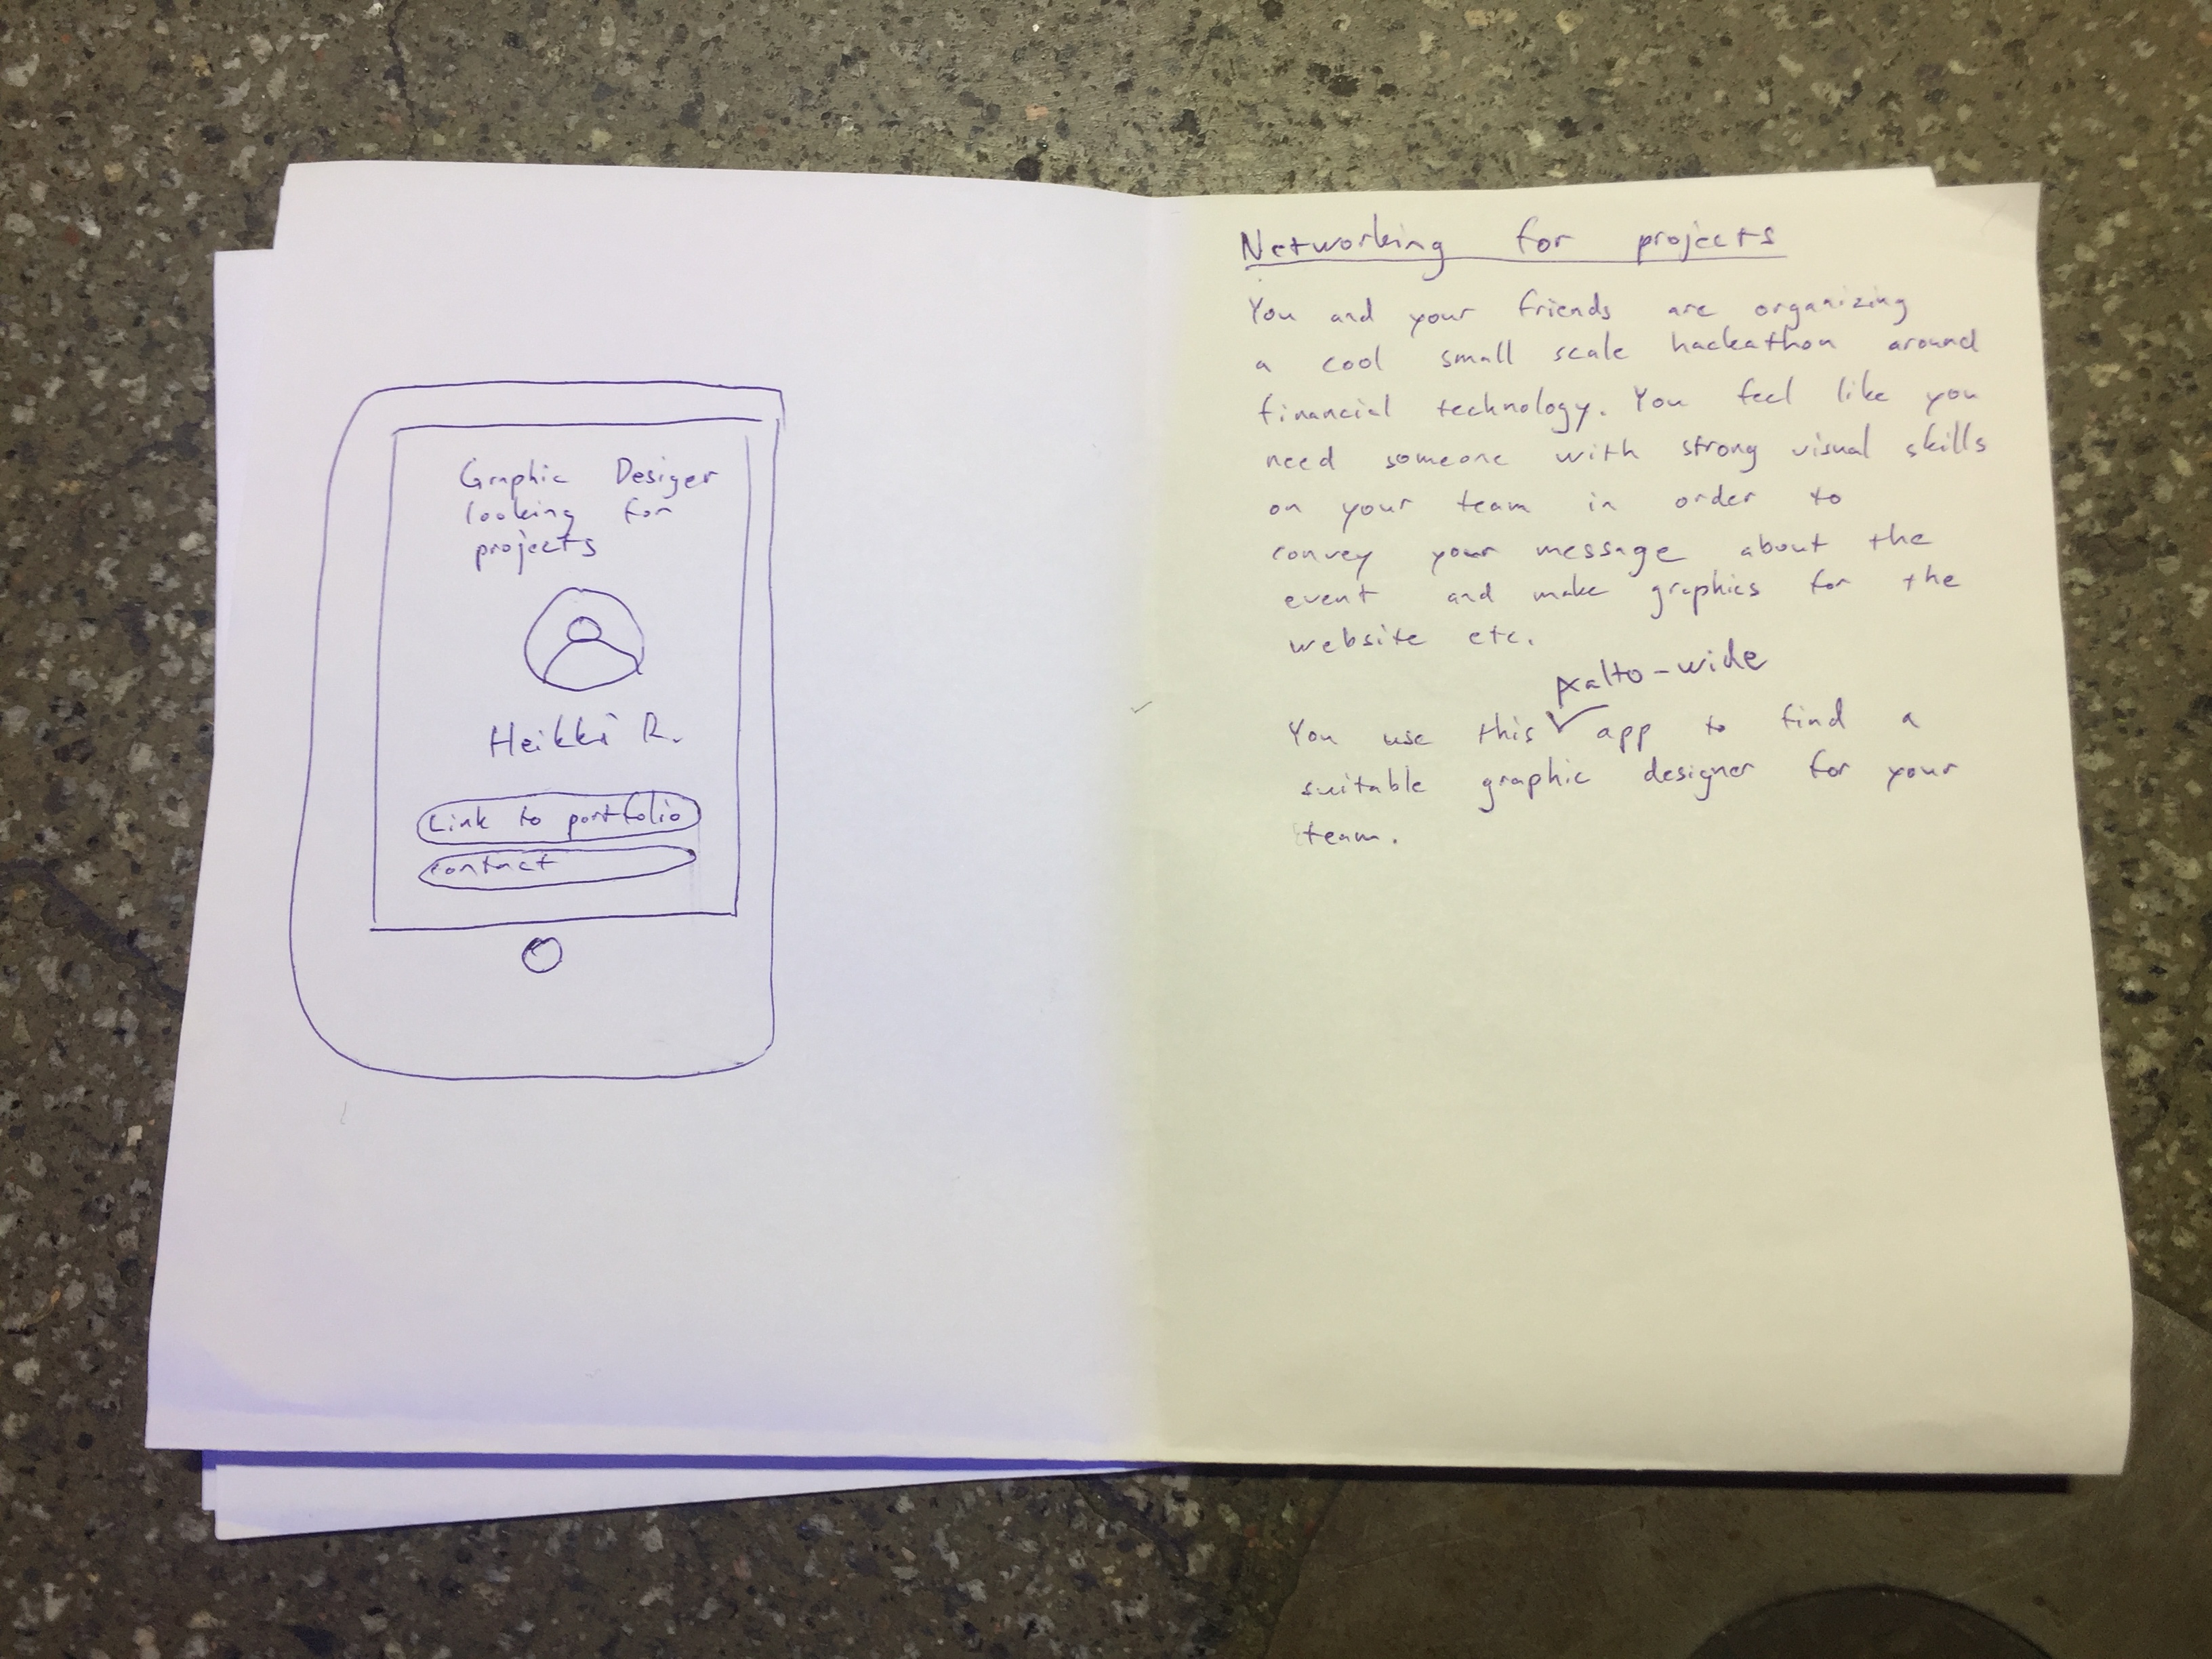 Graphic Desiger
looking for
projects
Heikki R.
Link to portfolio
contact
Networking for projects
You and your friends are organizing
a cool small scale hackathon around
financial technology. You feel like you
need someone with strong visual skills
on your team in order to
convey your message about the
event and make graphics for the
website etc.
Aalto-wide
You use this app to find a
suitable graphic designer for your
team.